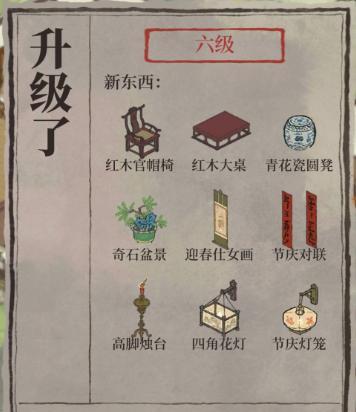 升级了
六级
新东西：
红木官帽椅 红木大桌 青花瓷圆凳
奇石盆景 迎春仕女画 节庆对联
高脚烛台 四角花灯 节庆灯笼